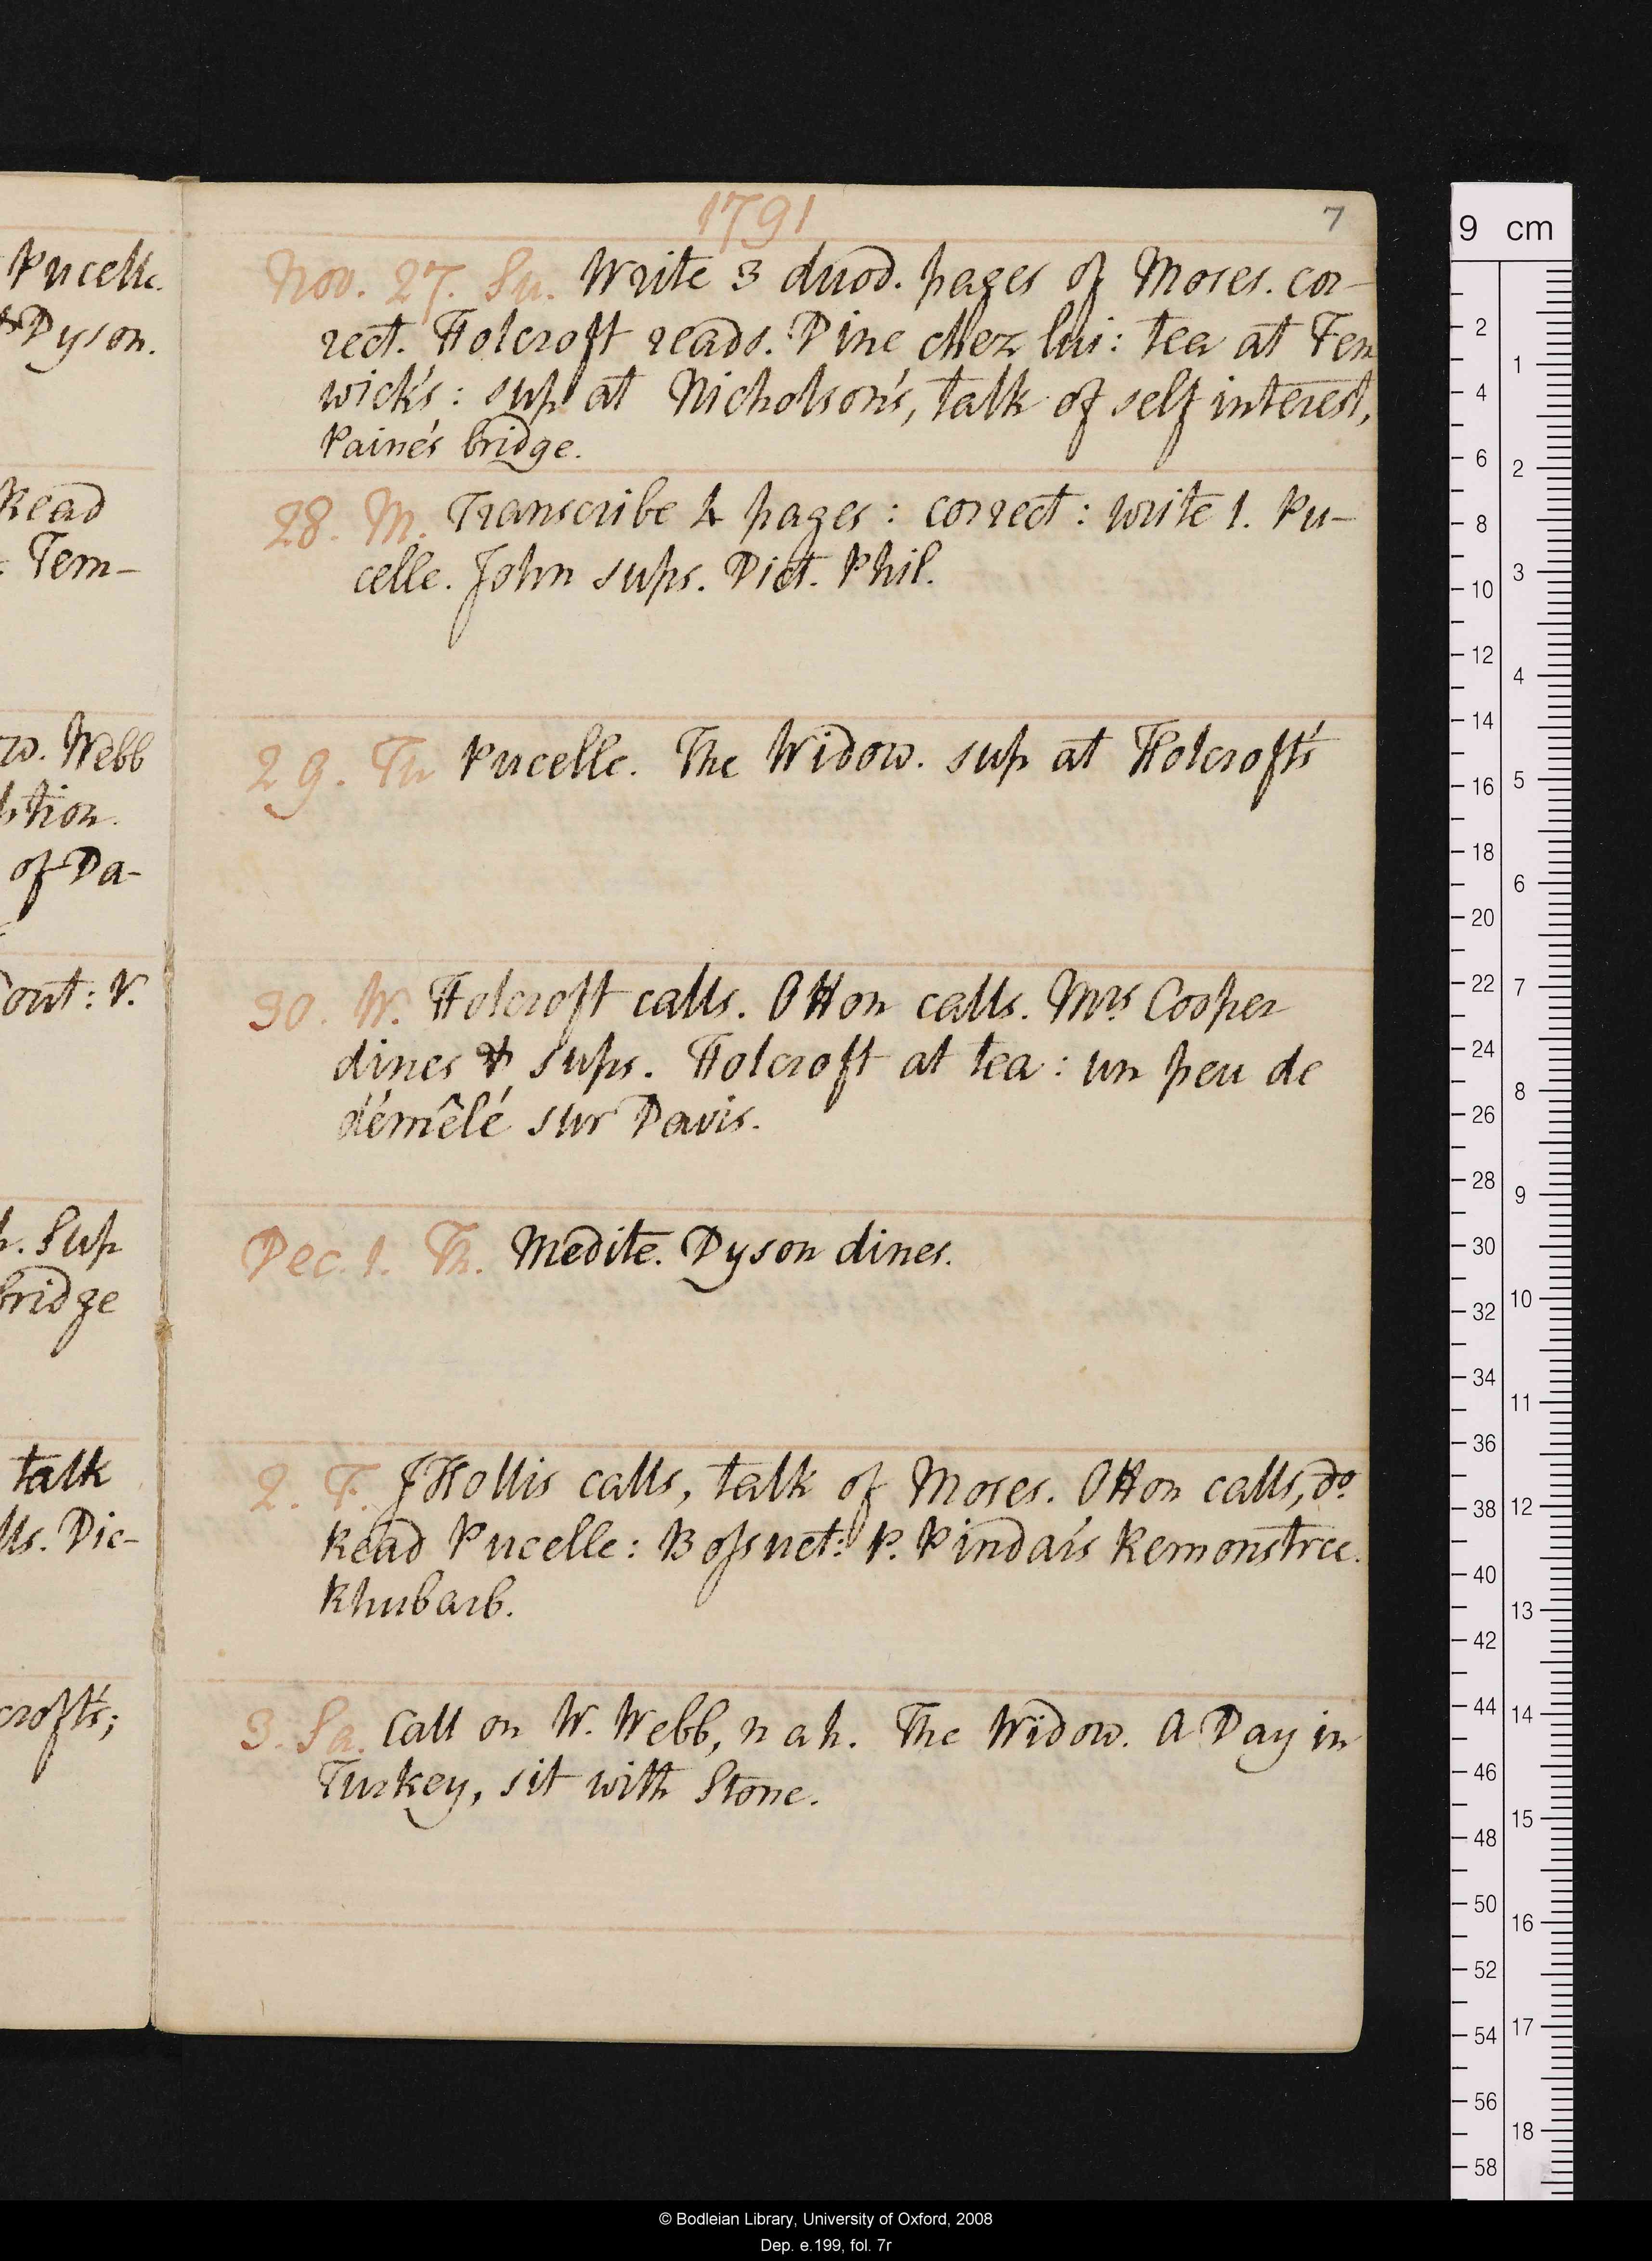 Pucelle.
& Dyson.
Read
: Tem-
w. Webb
ption.
of Da-
out: V.
Sup
bridge
talk
lls. Dic-
crofts;
1791
7
Nov. 27. Su. Write 3 duod. pages of Moses. cor-
rect. Holcroft reads. Dine chez lui: tea at Fen
wick's: sup at Nicholson's, talk of self interest,
Paine's bridge.
28. M. Transcribe 4 pages: correct: write 1. Pu-
celle. John sups. Dict. Phil.
29. Tu Pucelle. The Widow. sup at Holcroft's
30. W. Holcroft calls. Otton calls. Mrs Cooper
dines & sups. Holcroft at tea: un peu de
démêlé sur Davis.
Dec. 1. Th. Medite. Dyson dines.
2. F. J Hollis calls, talk of Moses. Otton calls, do.
Read Pucelle: Bossuet: P. Pindar's Remonstrce.
Rhubarb.
3. Sa. Call on W. Webb, n a h. The Widow. A Day in
Turkey, sit with Stone.
9 cm
2
4
6
8
10
12
14
16
18
20
22
24
26
28
30
32
34
36
38
40
42
44
46
48
50
52
54
56
58
1
2
3
4
5
6
7
8
9
10
11
12
13
14
15
16
17
18
© Bodleian Library, University of Oxford, 2008
Dep. e.199, fol. 7r